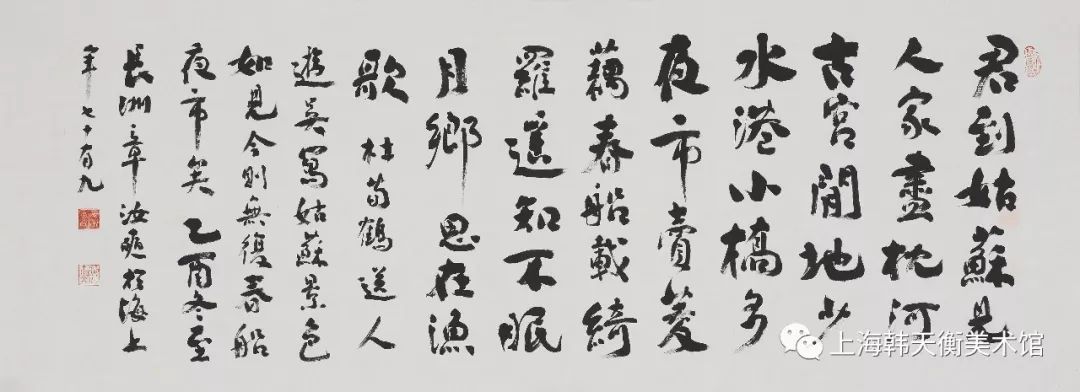 君到姑蘇見
人家盡枕河
古宮閒地少
水港小橋多
夜市賣菱
藕春船載綺
羅遥知不眠
月鄉思在漁
歌 杜荀鶴送人
遊吳寫姑蘇景色
如見今則無復春船
夜市矣乙酉冬至
長洲章汝奭於海上
年七十有九
上海韩天衡美术馆